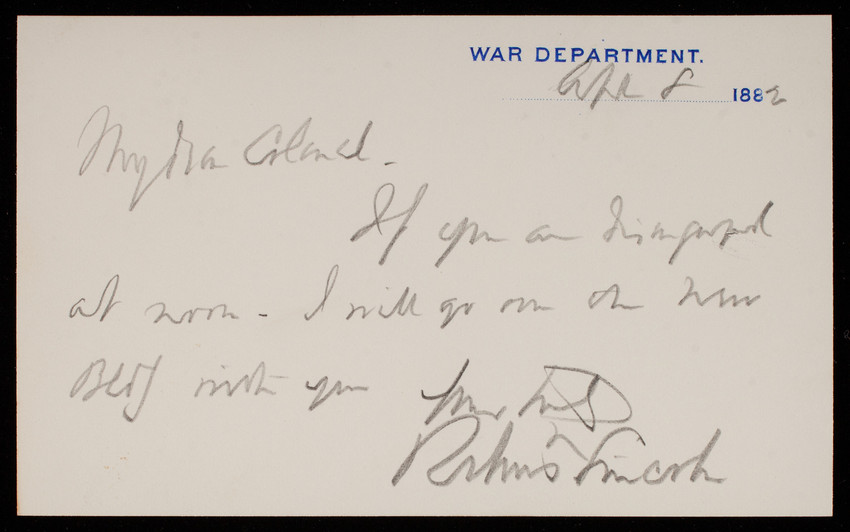 WAR DEPARTMENT.
Apl 8 1882
My dear Colonel -
If you are disengaged
at noon - I will go over the new
Bldg with you
Yours truly
Robert T Lincoln